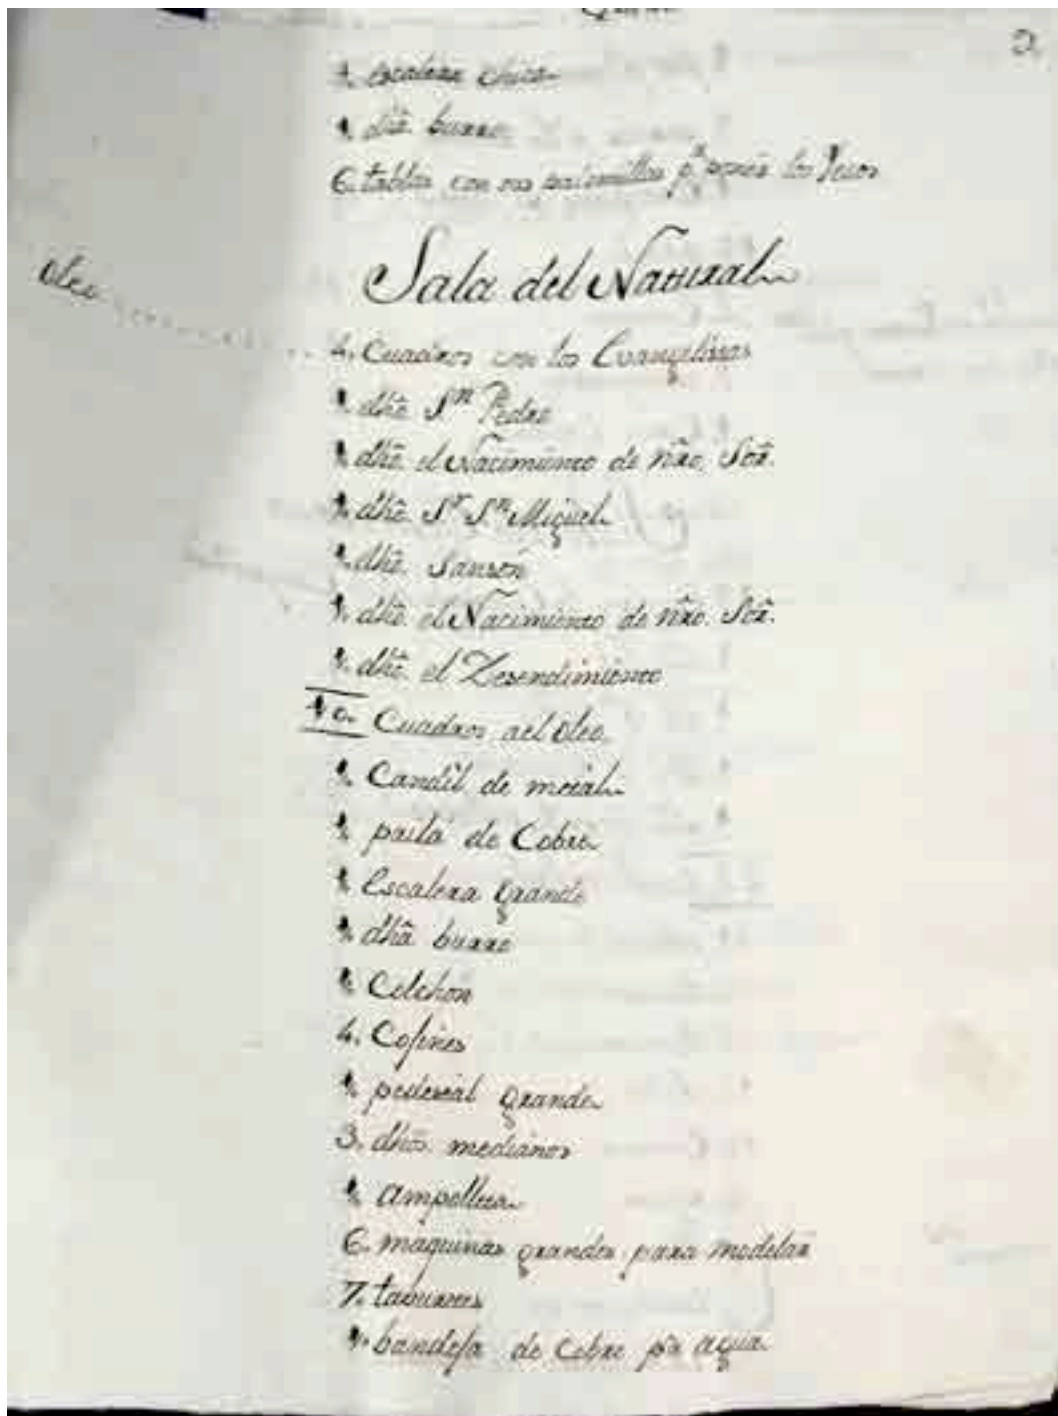 2
1. escalera chica
1. dhã. burro
6. tablas con sus palomillas pª poner los Yesos
Sala del Natural
Oleo
4. Cuadros con los Evangelistas
1. dhõ. Sⁿ Pedro
1. dhõ. el Nacimiento de ñro. Sõr.
1. dhõ. Sʳ Sⁿ Miguel
1. dhõ. Sanson
1. dhõ. el Nacimiento de ñro. Sõr.
1. dhõ. el Desendimiento
10. Cuadros al oleo
1. Candil de metal
1. paila de Cobre
1. Escalera grande
1. dhã burro
1. Colchon
4. Cojines
1. pedestal grande
3. dhõs. medianos
1. ampolleta
6. maquinas grandes para modelar
7. taburetes
1. bandeja de Cobre pª agua